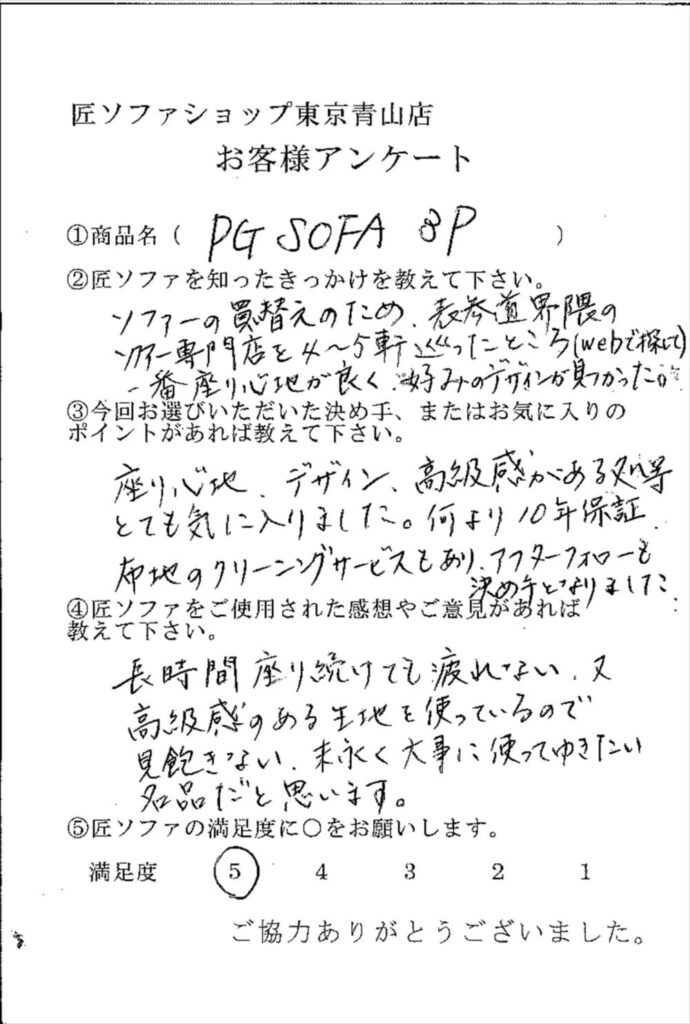 匠ソファショップ東京青山店
お客様アンケート
①商品名（ PG SOFA 3P ）
②匠ソファを知ったきっかけを教えて下さい。
ソファーの買替えのため、表参道界隈の
ソファー専門店を4〜5軒巡ったところ(webで探して)
一番座り心地が良く、好みのデザインが見つかった。
③今回お選びいただいた決め手、またはお気に入りの
ポイントがあれば教えて下さい。
座り心地、デザイン、高級感がある処等
とても気に入りました。何より10年保証、
布地のクリーニングサービスもあり、アフターフォローも
決め手となりました。
④匠ソファをご使用された感想やご意見があれば
教えて下さい。
長時間座り続けても疲れない、又
高級感のある生地を使っているので
見飽きない、末永く大事に使ってゆきたい
名品だと思います。
⑤匠ソファの満足度に〇をお願いします。
満足度 5 4 3 2 1
ご協力ありがとうございました。